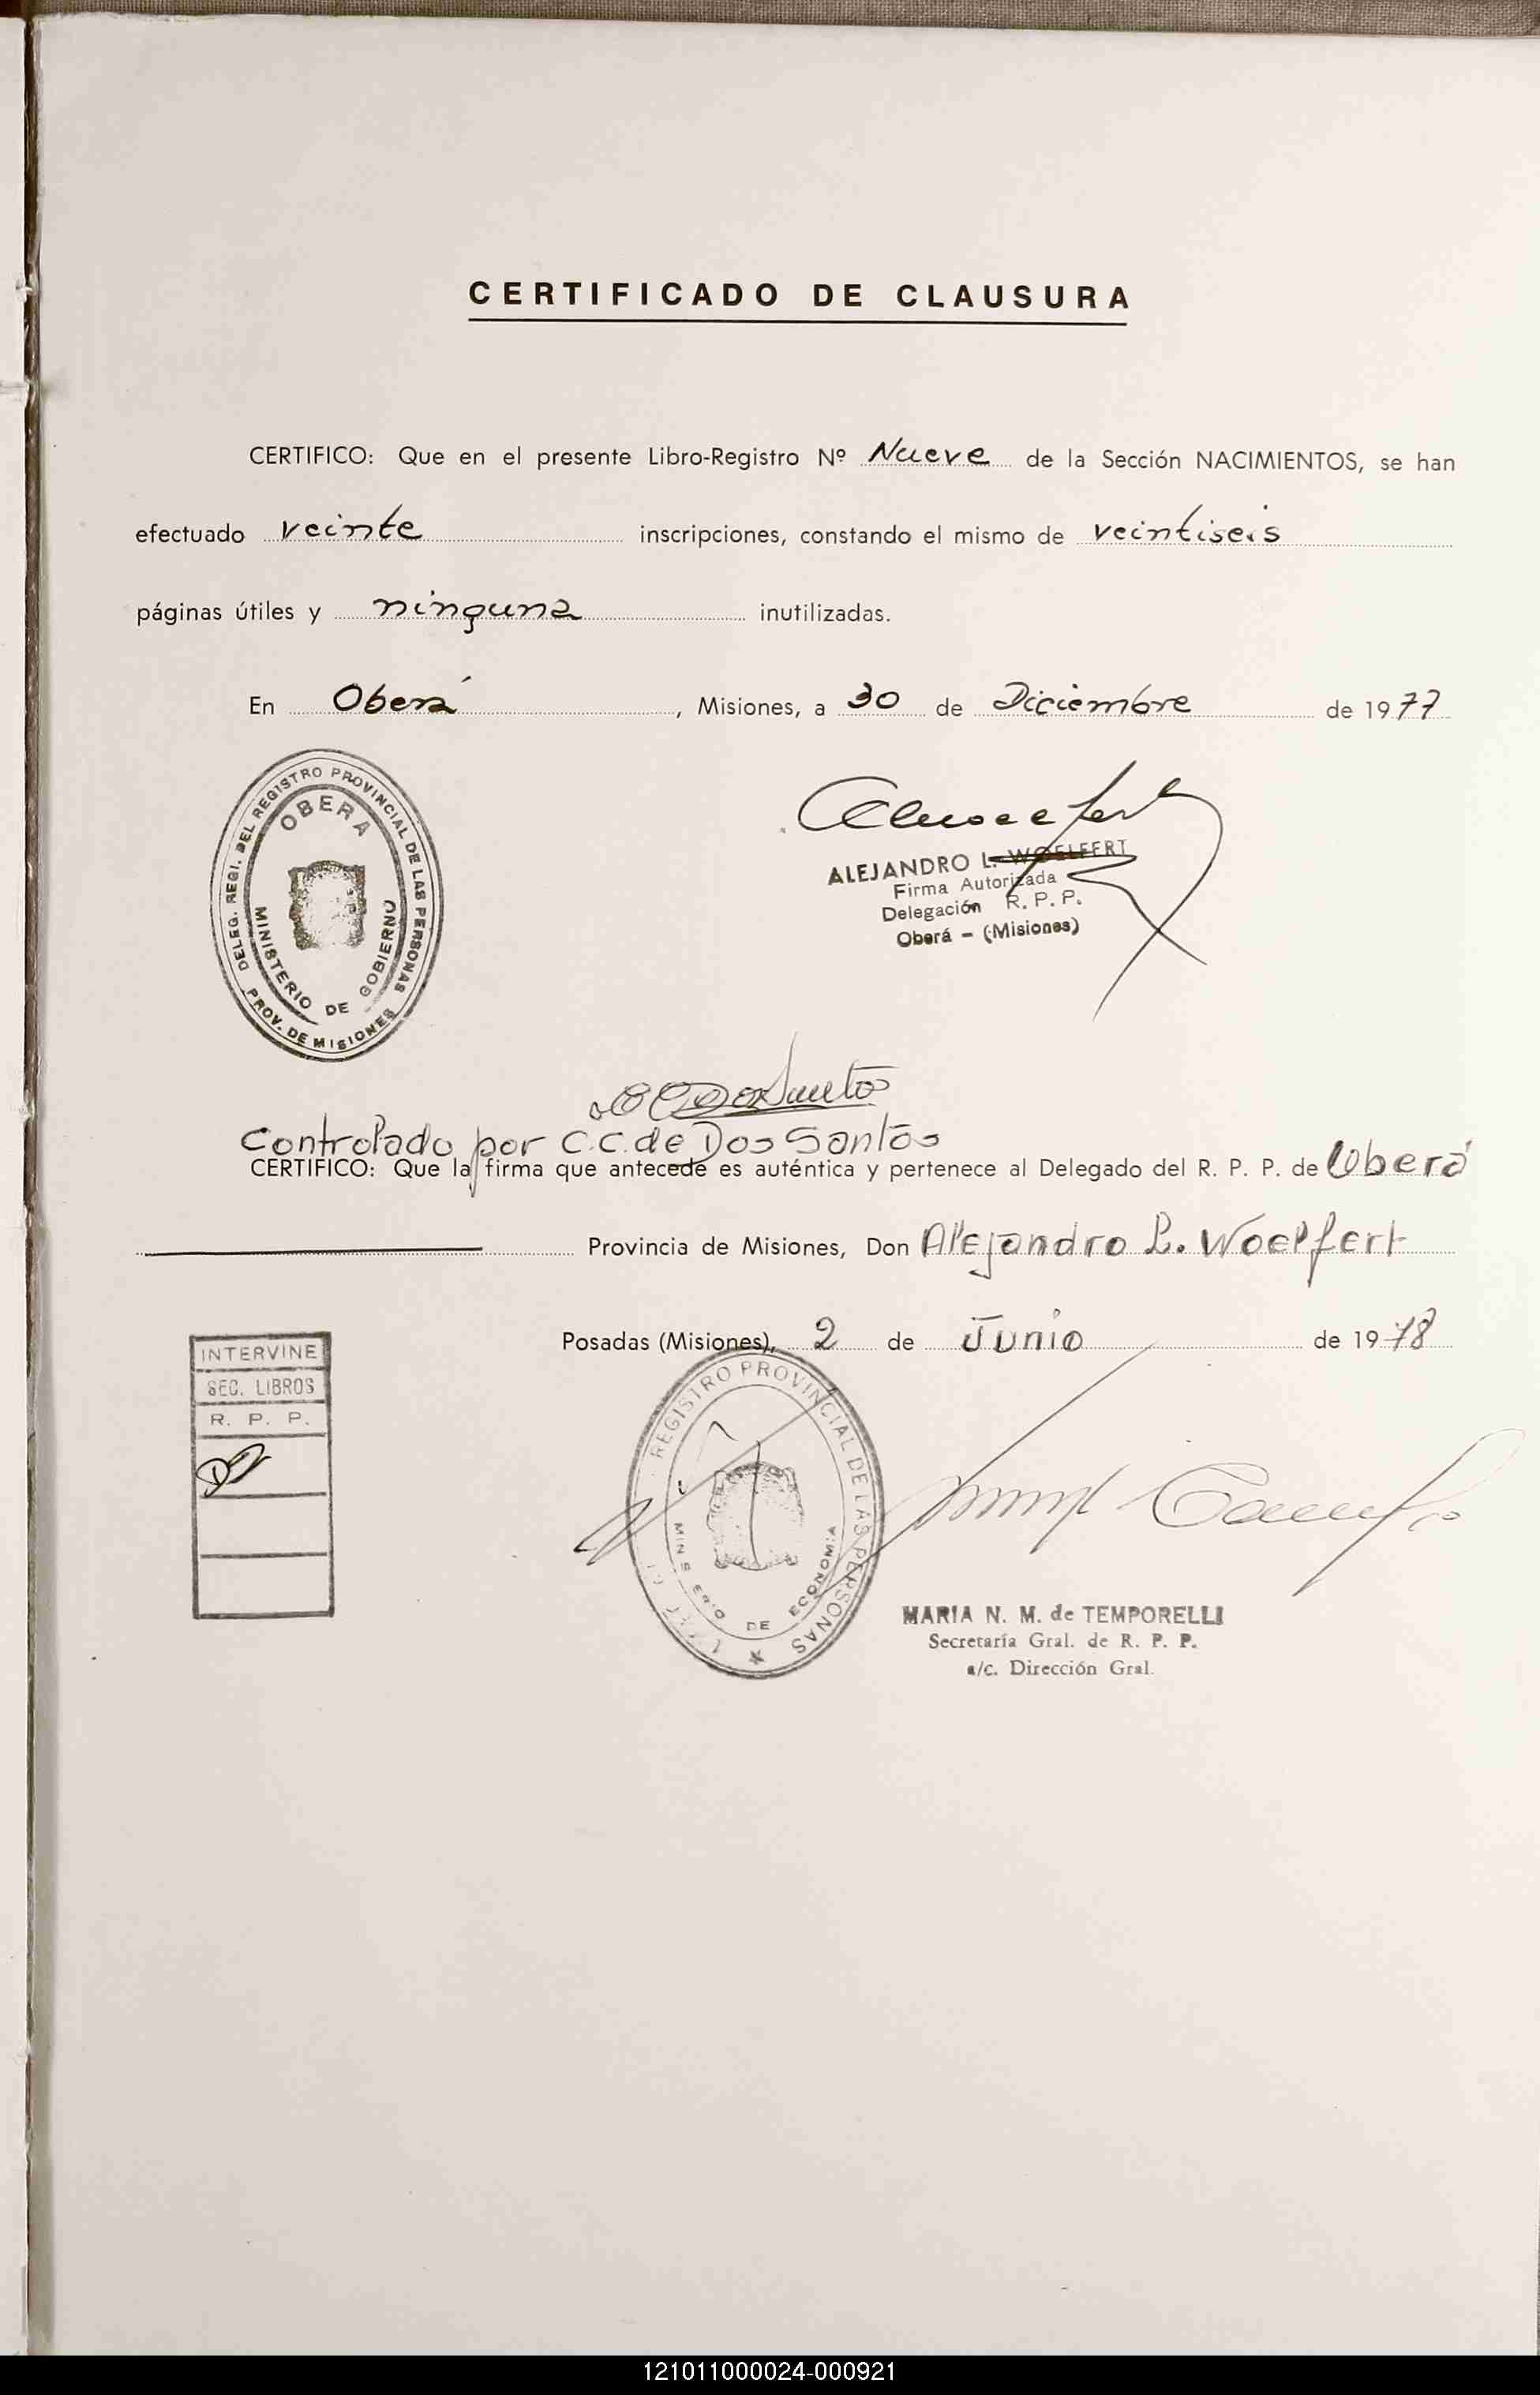 CERTIFICADO DE CLAUSURA
CERTIFICO: Que en el presente Libro-Registro Nº Nueve de la Sección NACIMIENTOS, se han
efectuado veinte inscripciones, constando el mismo de veintiseis
páginas útiles y ninguna inutilizadas.
En Oberá, Misiones, a 30 de Diciembre de 1977
DELEG. REGI. DEL REGISTRO PROVINCIAL DE LAS PERSONAS
OBERA
MINISTERIO DE GOBIERNO
PROV. DE MISIONES
ALEJANDRO L. WOELFERT
Firma Autorizada
Delegación R. P. P.
Oberá - (Misiones)
Controlado por C.C. de Dos Santos
CERTIFICO: Que la firma que antecede es auténtica y pertenece al Delegado del R. P. P. de Oberá
Provincia de Misiones, Don Alejandro L. Woelfert
Posadas (Misiones), 2 de Junio de 1978
INTERVINE
SEC. LIBROS
R. P. P.
REGISTRO PROVINCIAL DE LAS PERSONAS
DE ECONOMIA
MARIA N. M. de TEMPORELLI
Secretaría Gral. de R. P. P.
a/c. Dirección Gral.
121011000024-000921